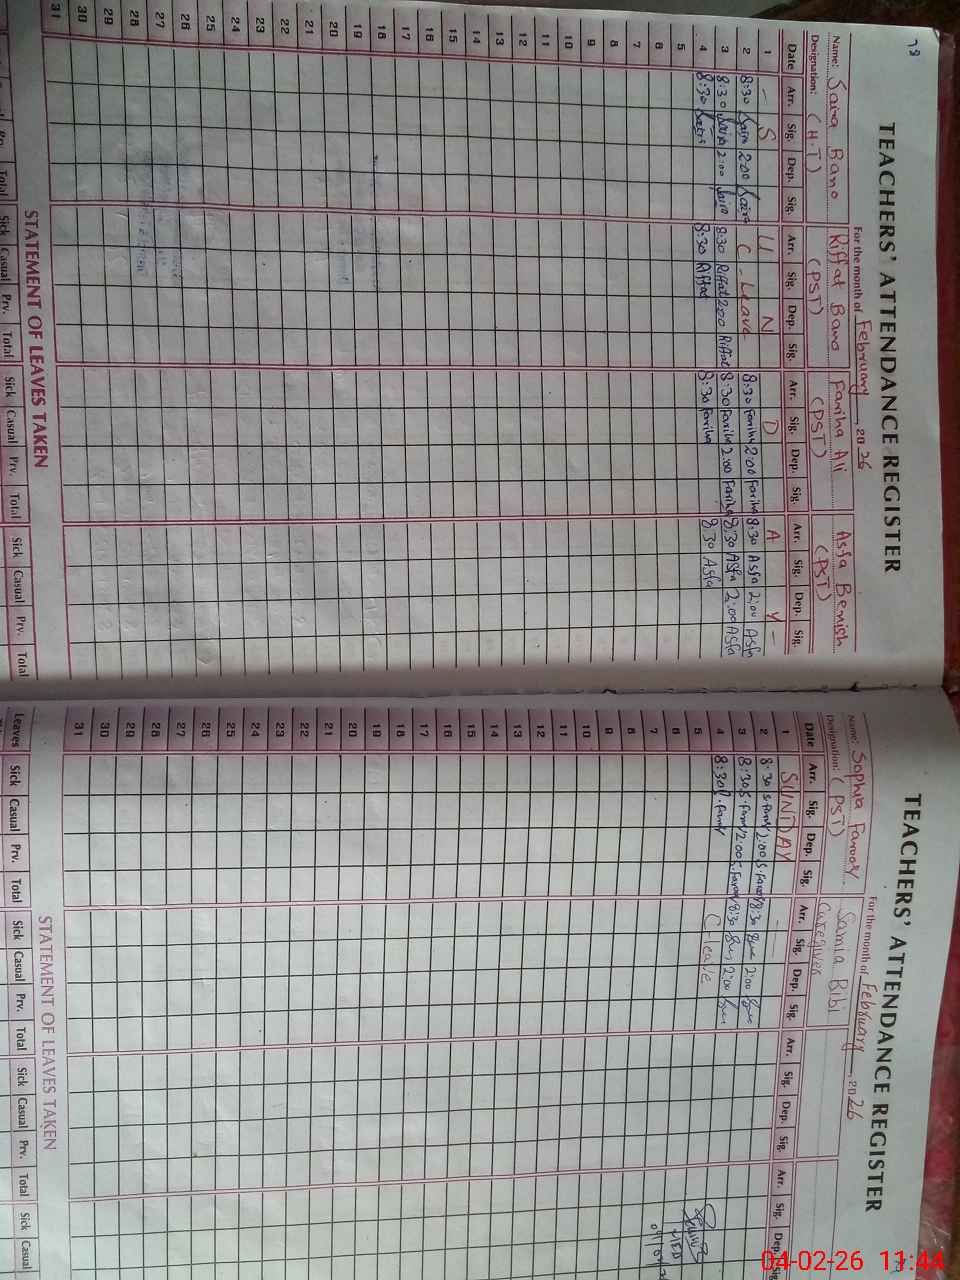 78
TEACHERS' ATTENDANCE REGISTER
For the month of February, 2026
Name: Saira Bano Riffat Bano Fariha Ali Asfa Benish
Designation: (H.T) (PST) (PST) (PST)
Date Arr. Sig. Dep. Sig. Arr. Sig. Dep. Sig. Arr. Sig. Dep. Sig. Arr. Sig. Dep. Sig.
1 - S U N D A Y -
2 8:30 Saira 2:00 Saira C - Leave 8:30 Fariha 2:00 Fariha 8:30 Asfa 2:00 Asfa
3 8:30 Saira 2:00 Saira 8:30 Riffat 2:00 Riffat 8:30 Fariha 2:00 Fariha 8:30 Asfa 2:00 Asfa
4 8:30 Saira 8:30 Riffat 8:30 Fariha 8:30 Asfa
5
6
7
8
9
10
11
12
13
14
15
16
17
18
19
20
21
22
23
24
25
26
27
28
29
30
31
STATEMENT OF LEAVES TAKEN
Sick Casual Prv. Total Sick Casual Prv. Total Sick Casual Prv. Total
TEACHERS' ATTENDANCE REGISTER
For the month of February, 2026
Name: Sophia Farooq Samia Bibi
Designation: (PST) Caregiver
Date Arr. Sig. Dep. Sig. Arr. Sig. Dep. Sig. Arr. Sig. Dep. Sig. Arr. Sig. Dep. Sig.
1 SUNDAY
2 8:30 S.Farooq 2:00 S.Farooq 8:30 2:00
3 8:30 S.Farooq 2:00 S.Farooq 8:30 2:00
4 8:30 S.Farooq C leave
5
6
7
8
9
10
11
12
13
14
15
16
17
18
19
20
21
22
23
24
25
26
27
28
29
30
31
STATEMENT OF LEAVES TAKEN
Leaves Sick Casual Prv. Total Sick Casual Prv. Total Sick Casual Prv. Total Sick Casual
04-02-26 11:44